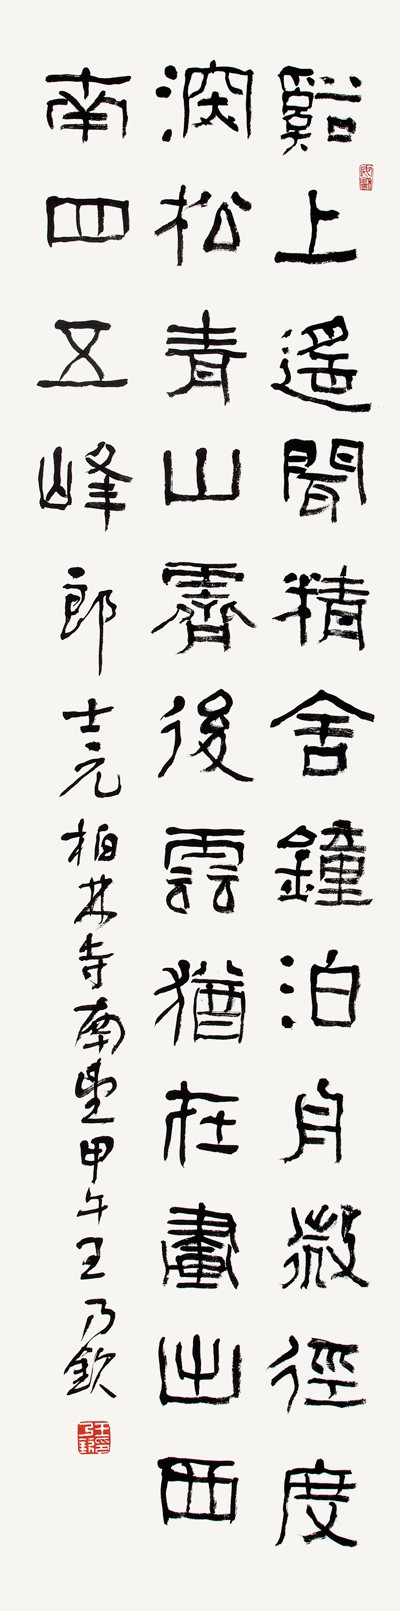 谿上遙聞精舍鐘泊舟微徑度
深松青山霽後雲猶在畫出西
南四五峰郎士元柏林寺南望甲午王乃欽